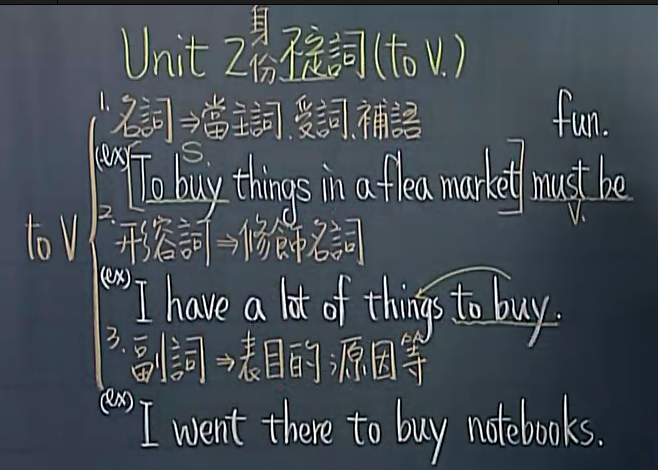 Unit 2 身份 不定詞 (to V.)
1. 名詞 ⇒ 當主詞、受詞、補語
(ex) [To buy things in a flea market] must be fun.
S. V.
to V
2. 形容詞 ⇒ 修飾名詞
(ex) I have a lot of things to buy.
3. 副詞 → 表目的、原因等
(ex) I went there to buy notebooks.